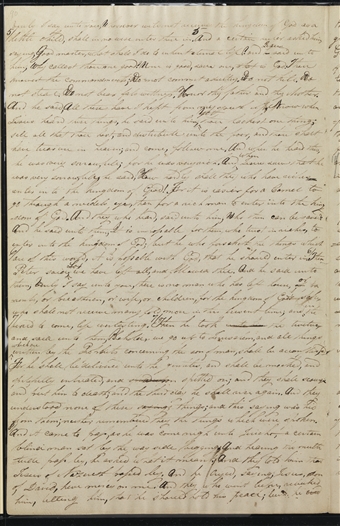 verily I say unto you, Whosoever will not receive the kingdom of God as a
little child, shall in no wise enter therein. And a certain ruler asked him,
saying, Good master, what shall I do to inherit eternal life? And Jesus said unto
him, Why callest thou me good? None is good, save one, that is God. Thou
knowest the commandments, Do not commit adultery, Do not kill, Do
not steal, Do not bear false witness, Honor thy father and thy Mother.
And he said, All these have I kept from my youth up. Now when
Jesus heard these things, he said unto him, Yet lackest thou one thing;
sell all that thou hast, and distribute unto the poor, and thou shalt
have treasure in heaven, and come, follow me. And when he heard this,
he was very sorrowful; for he was very rich. And when Jesus saw that he
was very sorrowful, he said, How hardly shall they who have riches
enter into the kingdom of God! For it is easier for a camel to
go through a needle's eye, than for a rich man to enter into the king
dom of God. And they who heard, said unto him, Who then can be saved?
And he said unto them, It is impossible for them who trust in riches, to
enter into the kingdom of God; but he who forsaketh the things which
are of this world, it is possible with God, that he should enter in. Then
Peter said, Lo, we have left all, and followed thee. And he said unto
them, Verily I say unto you, there is no man who has left house, or pa
rents, or brethren, or wife, or children, for the kingdom of God's sake
who shall not receive manifold more in this present time, and, in the
world to come, life everlasting. Then he took the twelve,
and said unto them, Behold, we go up to Jerusalem, and all things
written by the Prophets concerning the son of man, shall be accomplished
For he shall be delivered unto the gentiles, and shall be mocked, and
spitefully entreated, and spitted on; and they shall scourge
and put him to death; and the third day he shall rise again. And they
understood none of these things; and this saying was hid
from them; neither remembered they the things which were spoken.
And it came to pass, as he was come nigh unto Jericho, a certain
blind man sat by the way side, begging. And hearing the multi
tude pass by, he asked what it meant. And they told him that
Jesus of Nazareth passeth by. And he cried, saying, Jesus, son
of David, have mercy on me. And they who went before, rebuked
him, telling him, that he should hold his peace; but he cried